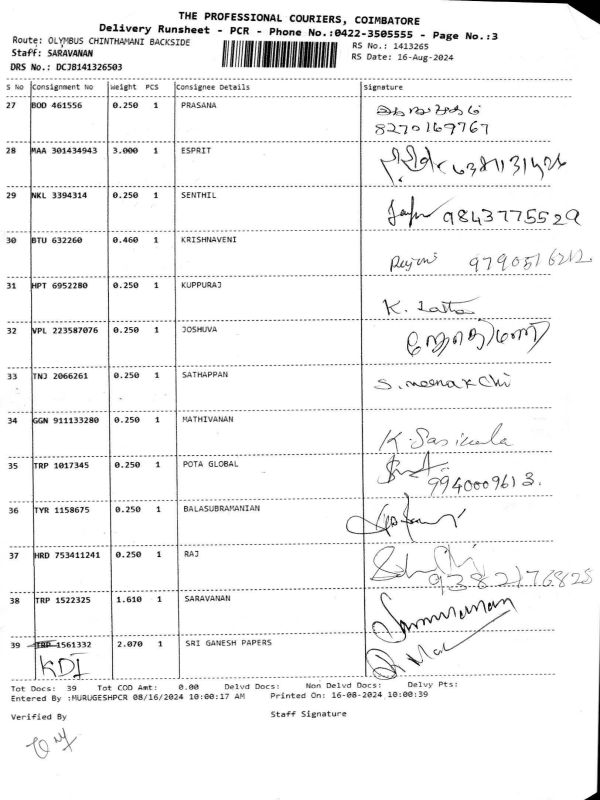 THE PROFESSIONAL COURIERS, COIMBATORE
Delivery Runsheet - PCR - Phone No.:0422-3505555 - Page No.:3
Route: OLYMBUS CHINTHAMANI BACKSIDE
RS No.: 1413265
Staff: SARAVANAN
RS Date: 16-Aug-2024
DRS No.: DCJB141326503
S No Consignment No Weight PCS Consignee Details Signature
27 BOD 461556 0.250 1 PRASANA
8270169767
28 MAA 301434943 3.000 1 ESPRIT
29 NKL 3394314 0.250 1 SENTHIL 9843775529
30 BTU 632260 0.460 1 KRISHNAVENI
31 HPT 6952280 0.250 1 KUPPURAJ
K. Latha
32 VPL 223587076 0.250 1 JOSHUVA
33 TNJ 2066261 0.250 1 SATHAPPAN S. meenakchi
34 GGN 911133280 0.250 1 MATHIVANAN
K. Sasikala
35 TRP 1017345 0.250 1 POTA GLOBAL
9940009613.
36 TYR 1158675 0.250 1 BALASUBRAMANIAN
37 HRD 753411241 0.250 1 RAJ
9382176825
38 TRP 1522325 1.610 1 SARAVANAN
Saravanan
39 TRP 1561332 2.070 1 SRI GANESH PAPERS
KDI
Tot Docs: 39 Tot COD Amt: 0.00 Delvd Docs: Non Delvd Docs: Delvy Pts:
Entered By :MURUGESHPCR 08/16/2024 10:00:17 AM Printed On: 16-08-2024 10:00:39
Verified By Staff Signature